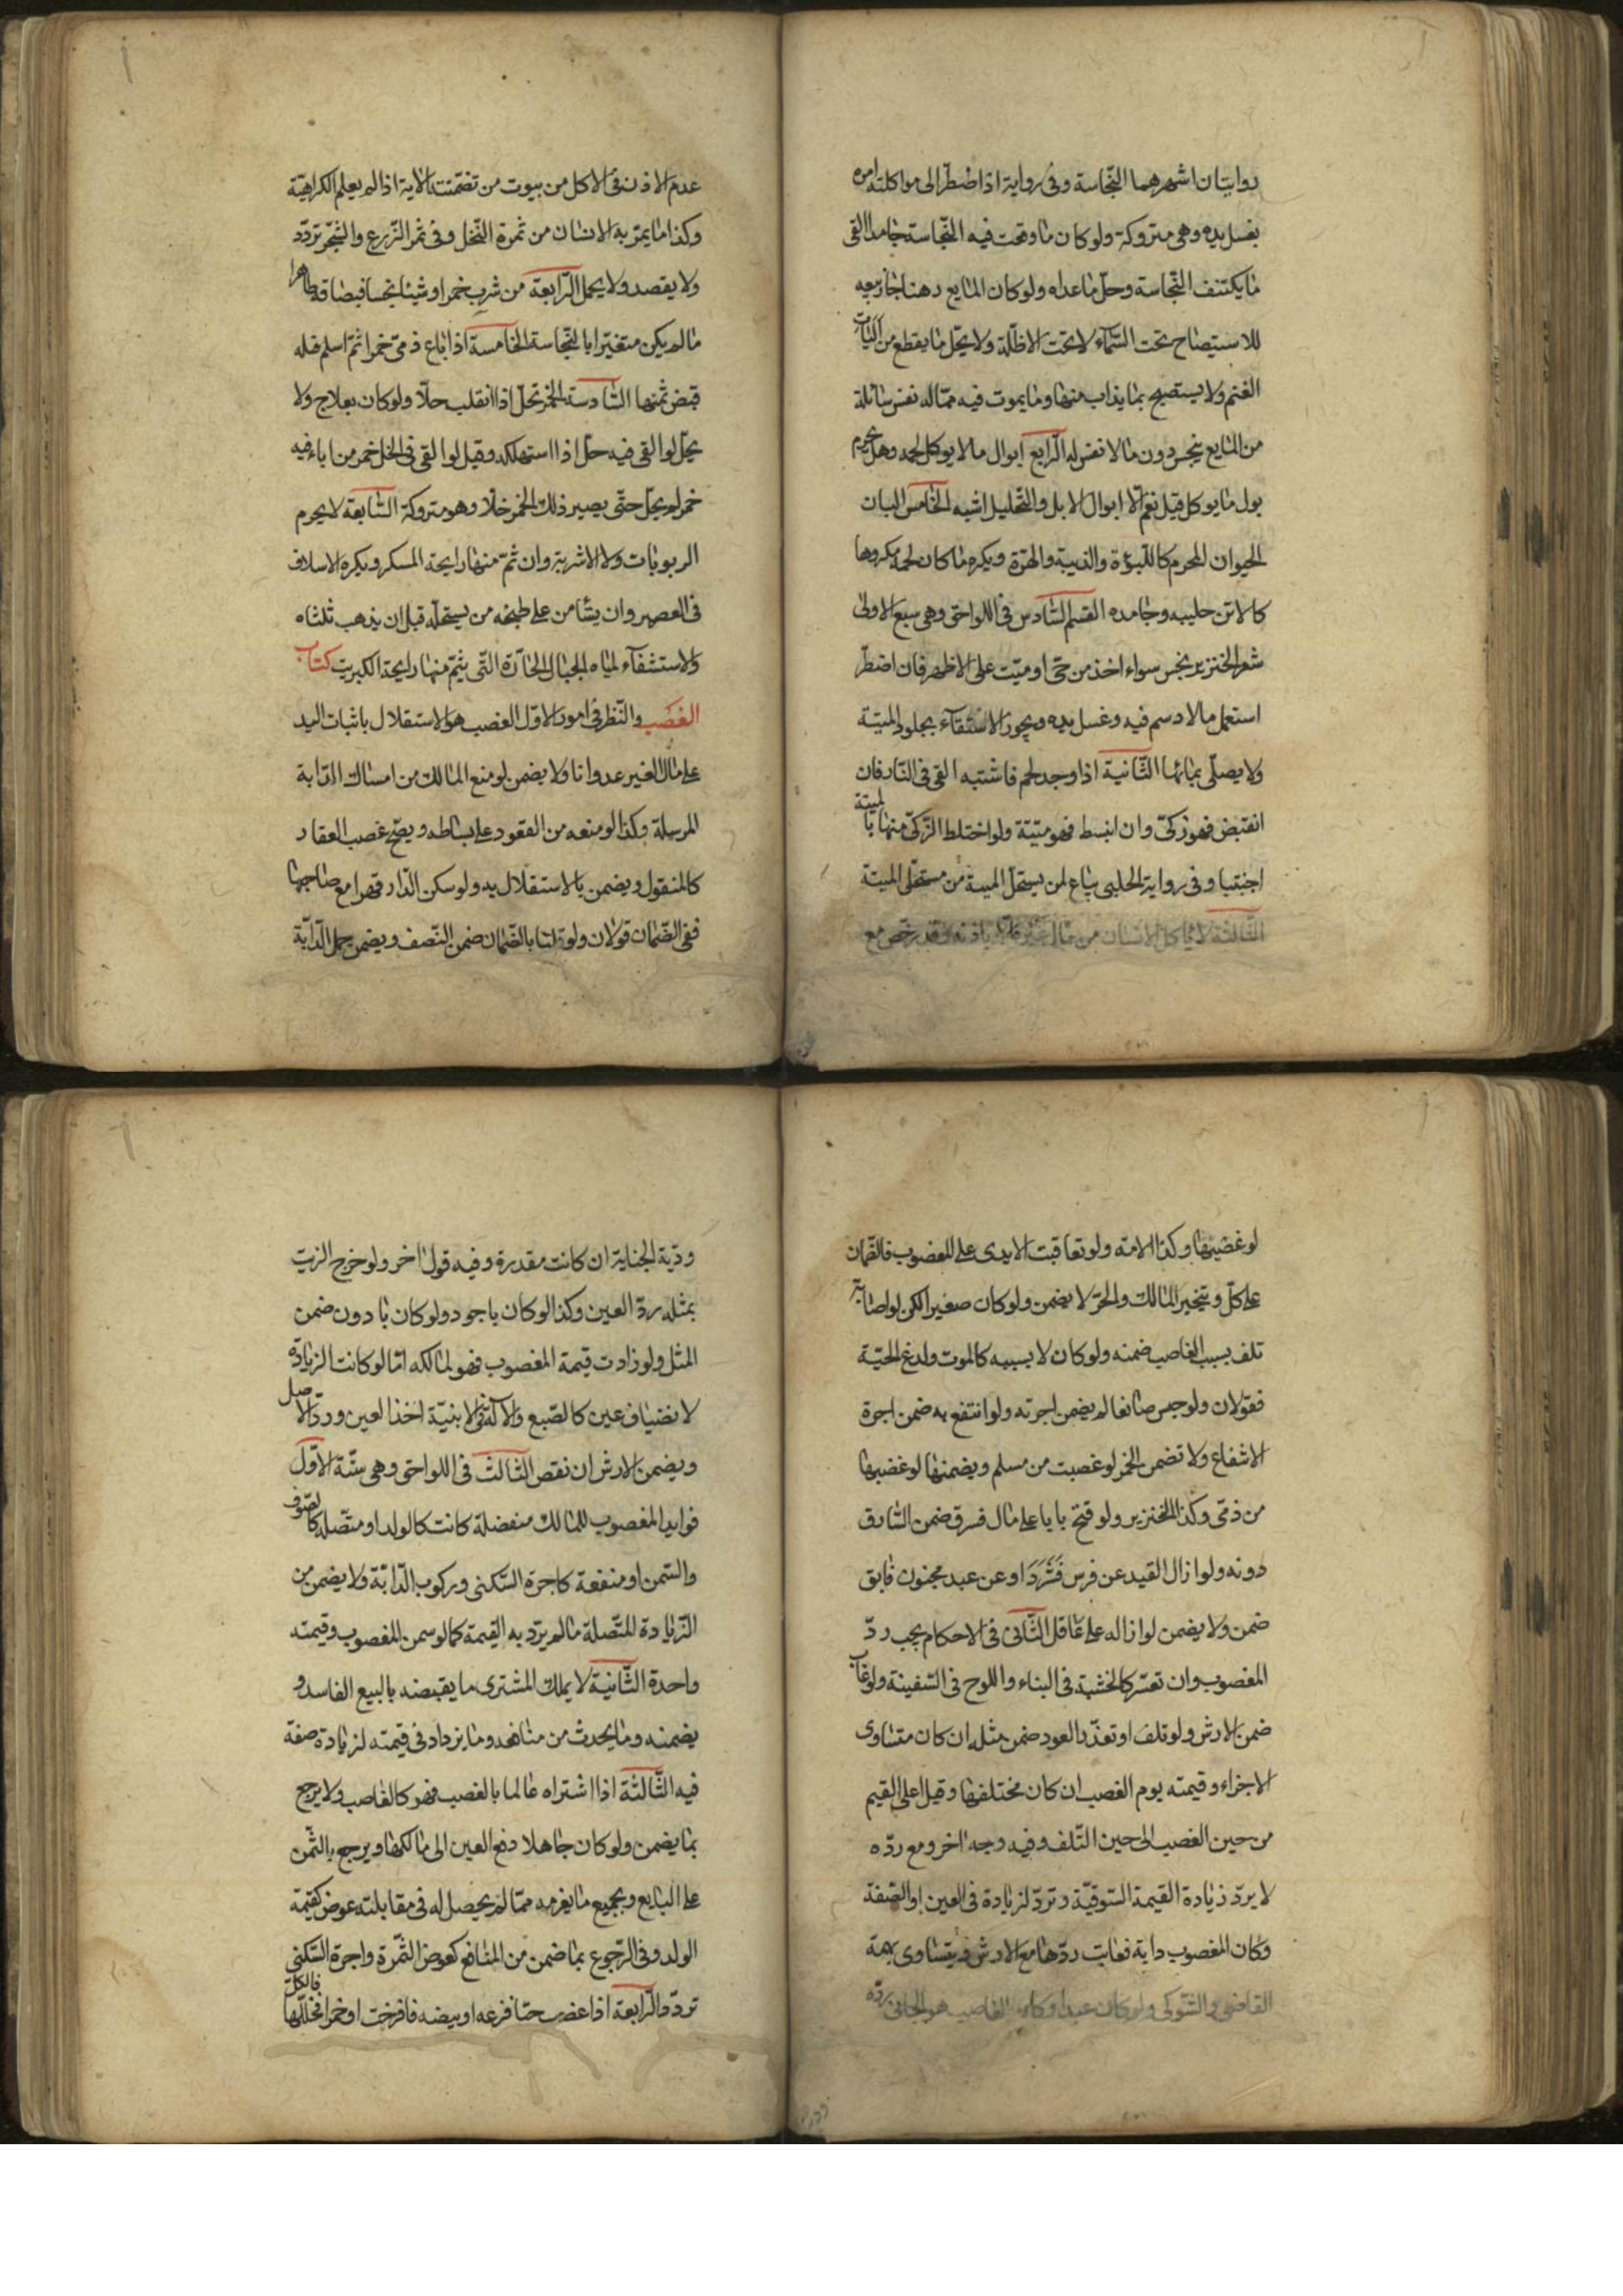 روايتان اشهرهما النجاسة وفى رواية اذا اضطر الى مواكلته امره
بغسل يده وهى متروكة ولو كان ما وقعت فيه النجاسة جامدا القى
ما يكتنف النجاسة وحل ما عداه ولو كان المايع دهنا جاز بيعه
للاستصباح تحت السماء لا تحت الاظلة ولا يحل ما يقطع من اليات
الغنم ولا يستصبح بما يذاب منها وما يموت فيه مما له نفس سائلة
من المايع ينجس دون ما لا نفس له الرابع ابوال ما لا يوكل لحمه وهل يحرم
بول ما يوكل قيل نعم الا ابوال الابل والتحليل اشبه الخامس البان
الحيوان المحرم كاللبوة والذيبة والهرة ويكره ما كان لحمه مكروها
كالاتن حليبه وجامده القسم السادس فى اللواحق وهى سبع الاولى
شعر الخنزير نجس سواء اخذ من حى او ميت على الاظهر فان اضطر
استعمل ما لا دسم فيه وغسل يده ويجوز الاستقاء بجلود الميتة
ولا يصلى بمائها الثانية اذا وجد لحم فاشتبه القى فى النار فان
انقبض فهو زكى وان انبسط فهو ميتة ولو اختلط الزكى منها بالميتة
اجنتبا وفى رواية الحلبى يباع لمن يستحل الميتة من مستحلى الميتة
الثالثة لا ياكل الانسان من مال غيره الا باذنه وقد رخص مع
عدم الاذن فى الاكل من بيوت من تضمنته الاية اذا لم يعلم الكراهية
وكذا ما يمر به الانسان من ثمرة النخل وفى ثمر الزرع والشجر تردد
ولا يقصد ولا يحمل الرابعة من شرب خمرا او شيئا نجسا فبصاقه طاهر
ما لم يكن متغيرا بالنجاسة الخامسة اذا باع ذمى خمرا ثم اسلم فله
قبض ثمنها السادسة الخمر تحل اذا انقلب خلا ولو كان بعلاج ولا
يحل لو القى فيه خل اذا استهلكه وقيل لو القى فى الخل خمر من اناء فيه
خمر لم يحل حتى يصير ذلك الخمر خلا وهو متروكة السابعة لا يحرم
الربوبات ولا الاشربة وان شم منها رايحة المسكر ويكره الاسلاف
فى العصير وان يستامن على طبخه من يستحله قبل ان يذهب ثلثاه
والاستشفاء لمياه الجبال الحارة التى يشم منها رايحة الكبريت كتاب
الغصب والنظر فى امور الاول الغصب هو الاستقلال باثبات اليد
على مال الغير عدوانا ولا يضمن لو منع المالك من امساك الدابة
المرسلة وكذا لو منعه من القعود على بساطه ويصح غصب العقار
كالمنقول ويضمن بالاستقلال به ولو سكن الدار قهرا مع صاحبها
ففى الضمان قولان ولو قلنا بالضمان ضمن النصف ويضمن حمل الدابة
لو غصبها وكذا الامة ولو تعاقبت الايدى على المغصوب فالضمان
على كل ويتخير المالك والحر لا يضمن ولو كان صغيرا لكن لو اصابه
تلف بسبب الغاصب ضمنه ولو كان لا بسببه كالموت ولدغ الحية
فقولان ولو حبس صانعا لم يضمن اجرته ولو انتفع به ضمن اجرة
الانتفاع ولا تضمن الخمر لو غصبت من مسلم ويضمنها لو غصبها
من ذمى وكذا الخنزير ولو فتح بابا على مال فسرق ضمن السارق
دونه ولو ازال القيد عن فرس فشرد او عن عبد مجنون فابق
ضمن ولا يضمن لو ازاله على عاقل الثانى فى الاحكام يجب رد
المغصوب وان تعسر كالخشبة فى البناء واللوح فى السفينة ولو عاب
ضمن الارش ولو تلف او تعذر العود ضمن مثله ان كان متساوى
الاجزاء وقيمته يوم الغصب ان كان مختلفها وقيل اعلى القيم
من حين الغصب الى حين التلف وفيه وجه اخر ومع رده
لا يرد زيادة القيمة السوقية وترد لزيادة فى العين او الصفة
وكان المغصوب دابة فعابت ردها مع الارش ويتساوى بهمة
القاضى والشوكى ولو كان عبدا وكان الغاصب هو الجانى رده
ودية الجناية ان كانت مقدرة وفيه قول اخر ولو خرج الزيت
بمثله رد العين وكذا لو كان باجود ولو كان بادون ضمن
المثل ولو زادت قيمة المغصوب فهو لمالكه اما لو كانت الزيادة
لانضياف عين كالصبغ والآلة فى الابنية اخذ العين ورد الاصل
ويضمن الارش ان نقص الثالث فى اللواحق وهى ستة الاول
فوايد المغصوب للمالك منفصلة كانت كالولد او متصلة كالصوف
والسمن او منفعة كاجرة السكنى وركوب الدابة ولا يضمن من
الزيادة المتصلة ما لم يزد به القيمة كما لو سمن المغصوب وقيمته
واحدة الثانية لا يملك المشترى ما يقبضه بالبيع الفاسد و
يضمنه وما يحدث من منافعه وما يزداد فى قيمته لزيادة صفة
فيه الثالثة اذا اشتراه عالما بالغصب فهو كالغاصب ولا يرجع
بما يضمن ولو كان جاهلا دفع العين الى مالكها ويرجع بالثمن
على البايع وبجميع ما يغرمه مما لم يحصل له فى مقابلته عوض كقيمة
الولد وفى الرجوع بما ضمن من المنافع كعوض الثمرة واجرة السكنى
تردد الرابعة اذا غصب حبا فزرعه او بيضه فافرخت او خمرا فخللها فالكل